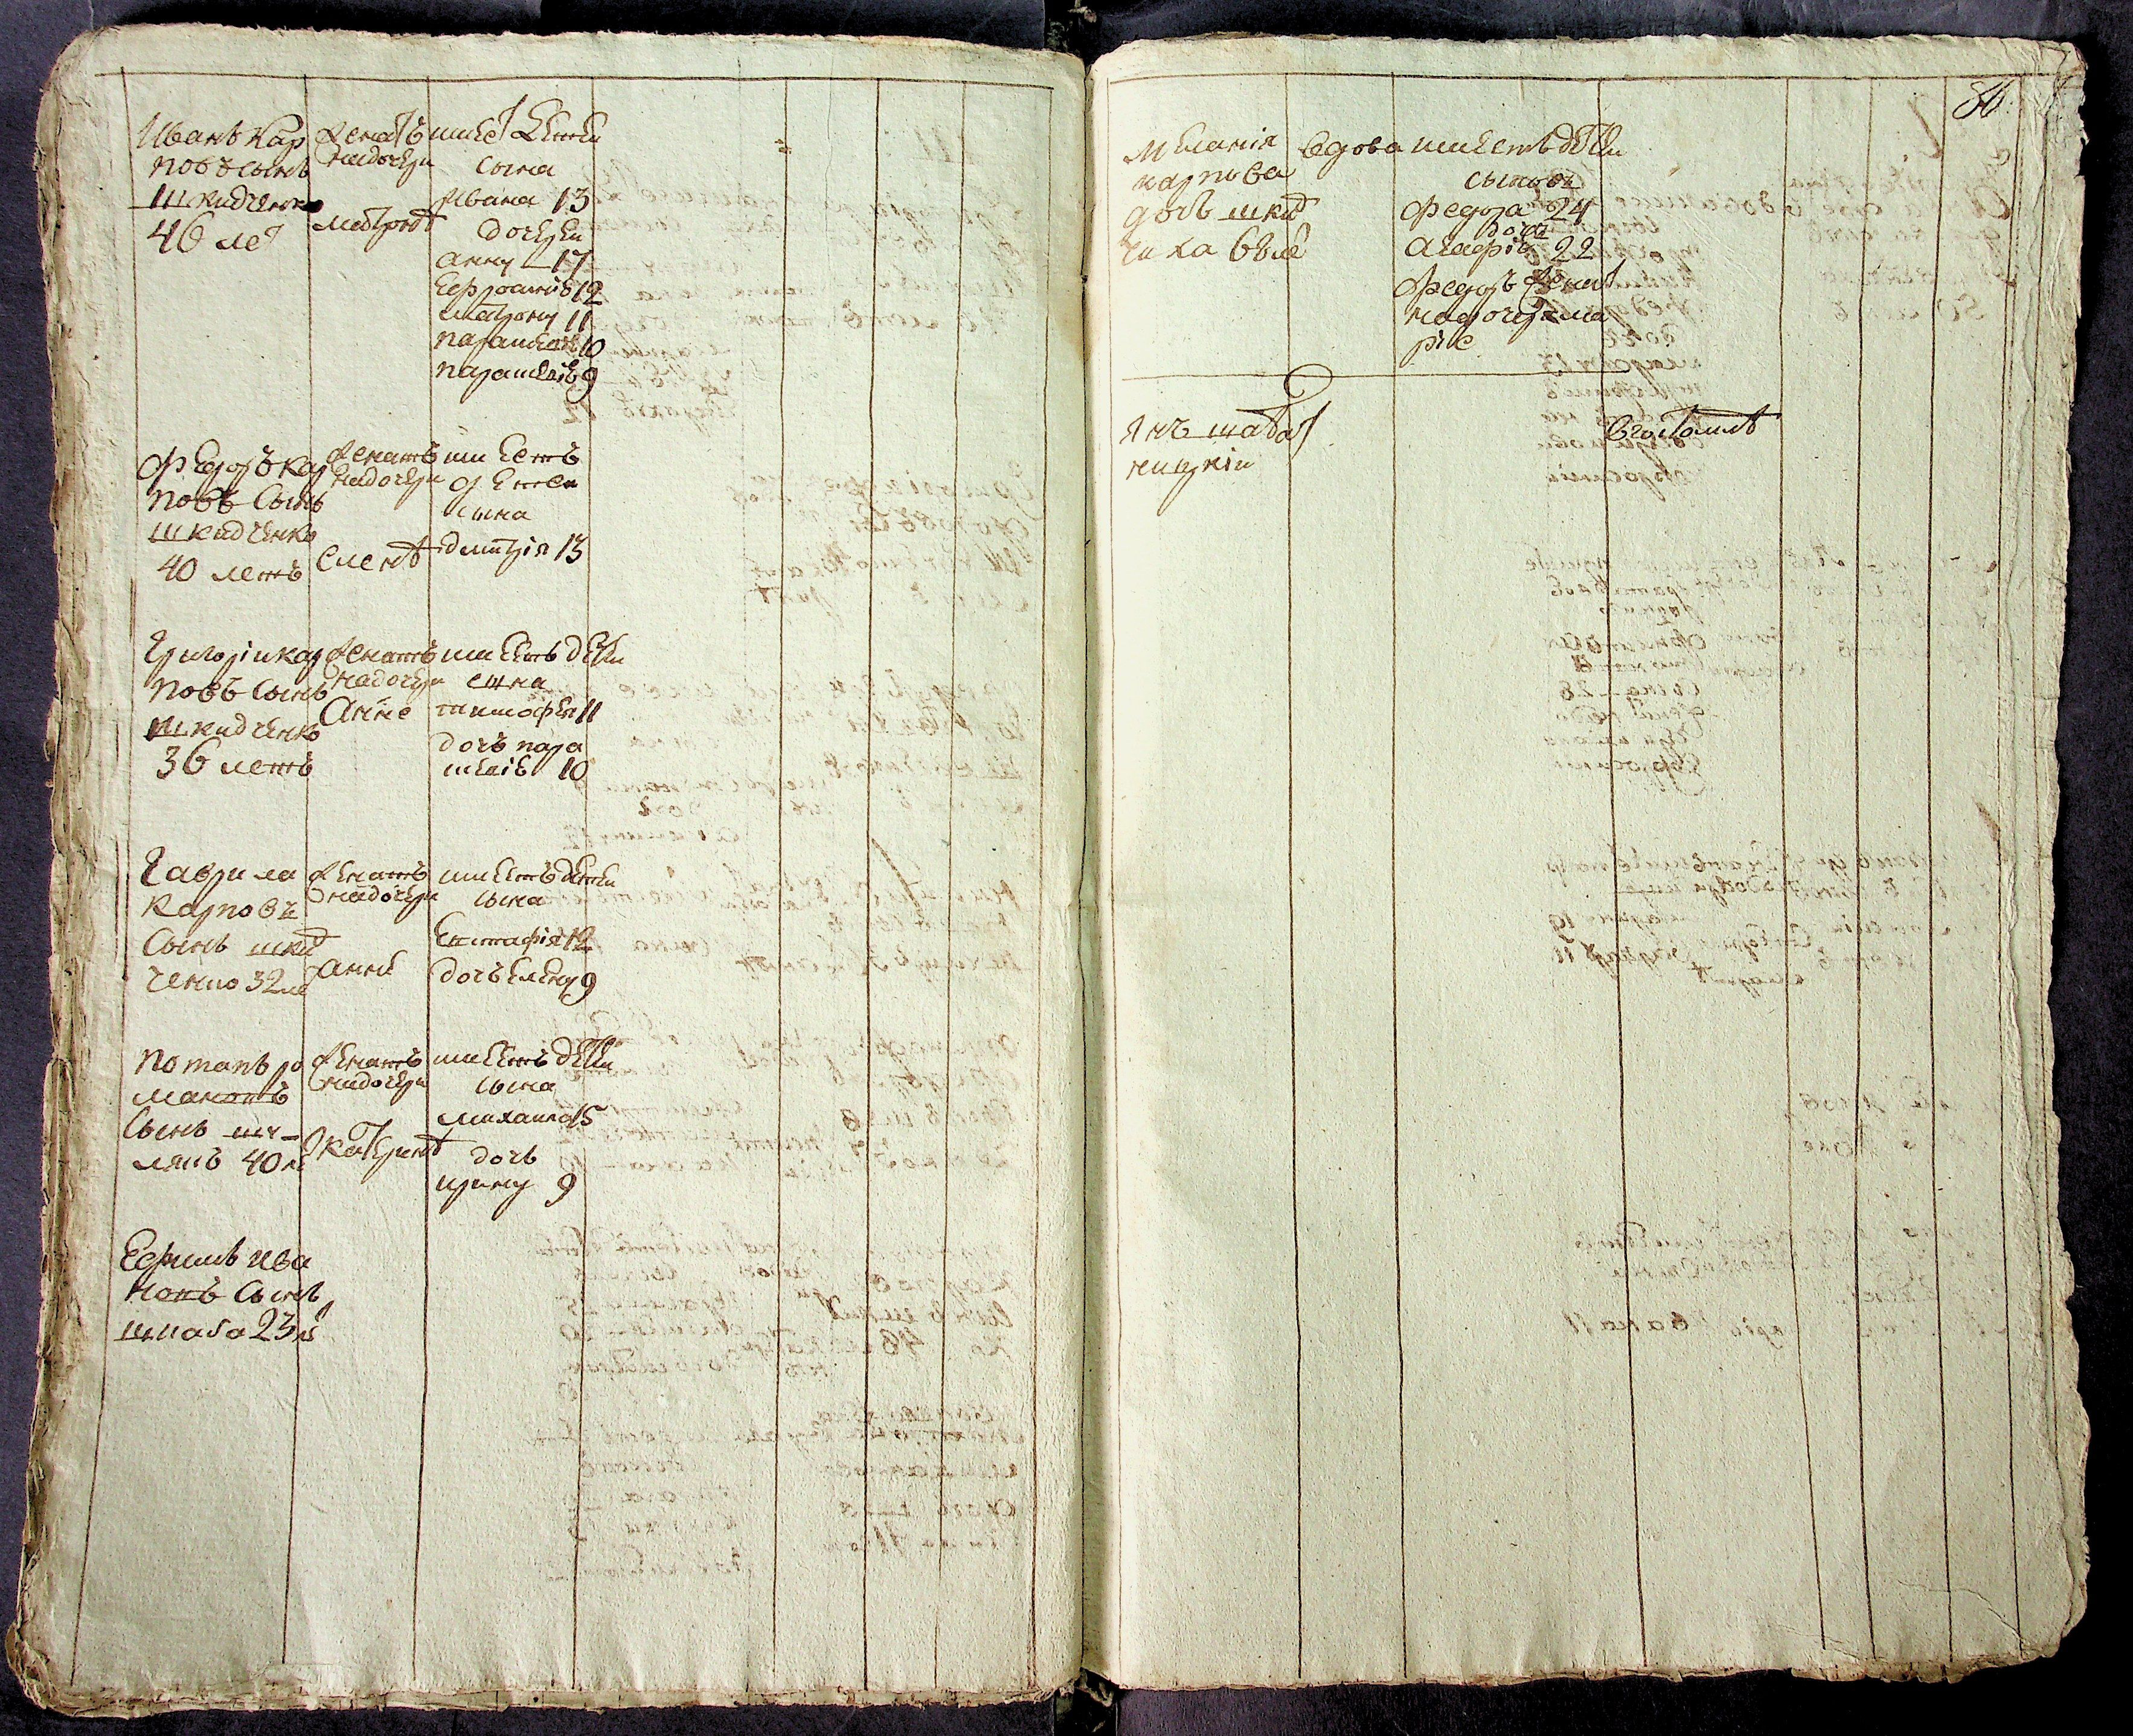 Иванъ Кар
повъ сынъ
шкидченко
46 ле
женатъ
на дочери
матроне
имеет детей
сына
Ивана 13
дочерей
анну 17
Ефросиню 12
матрону 11
параскеви 10
параскевию 9
Федоръ кар
повъ Сынъ
шкидченко
40 летъ
женатъ
на дочери
елене
имеетъ
детей
сына
дмитрия 13
Григорій кар
повъ Сынъ
шкидченко
36 летъ
женатъ
на дочери
Анне
имеетъ детей
сына
тимофея 11
дочъ пара
скевию 10
Гаврила
Карповъ
Сынъ шкид
ченко 32 ле
женатъ
на дочери
анне
имеетъ детей
сына
Евстафія 12
дочъ елену 9
Потапъ ро
мановъ
Сынъ
40 ле
женатъ
на дочери
катерине
имеетъ детей
сына
михаила 15
дочь
ирину 9
Ефимъ ива
новъ Сынъ
23 ле
86
Меланія
карпова
дочь шкид
чиха
вдова
имеетъ детей
сыновъ
Федора 24
дочь
агафію 22
Федоръ женат
на дочери ма
ріе
Янъ